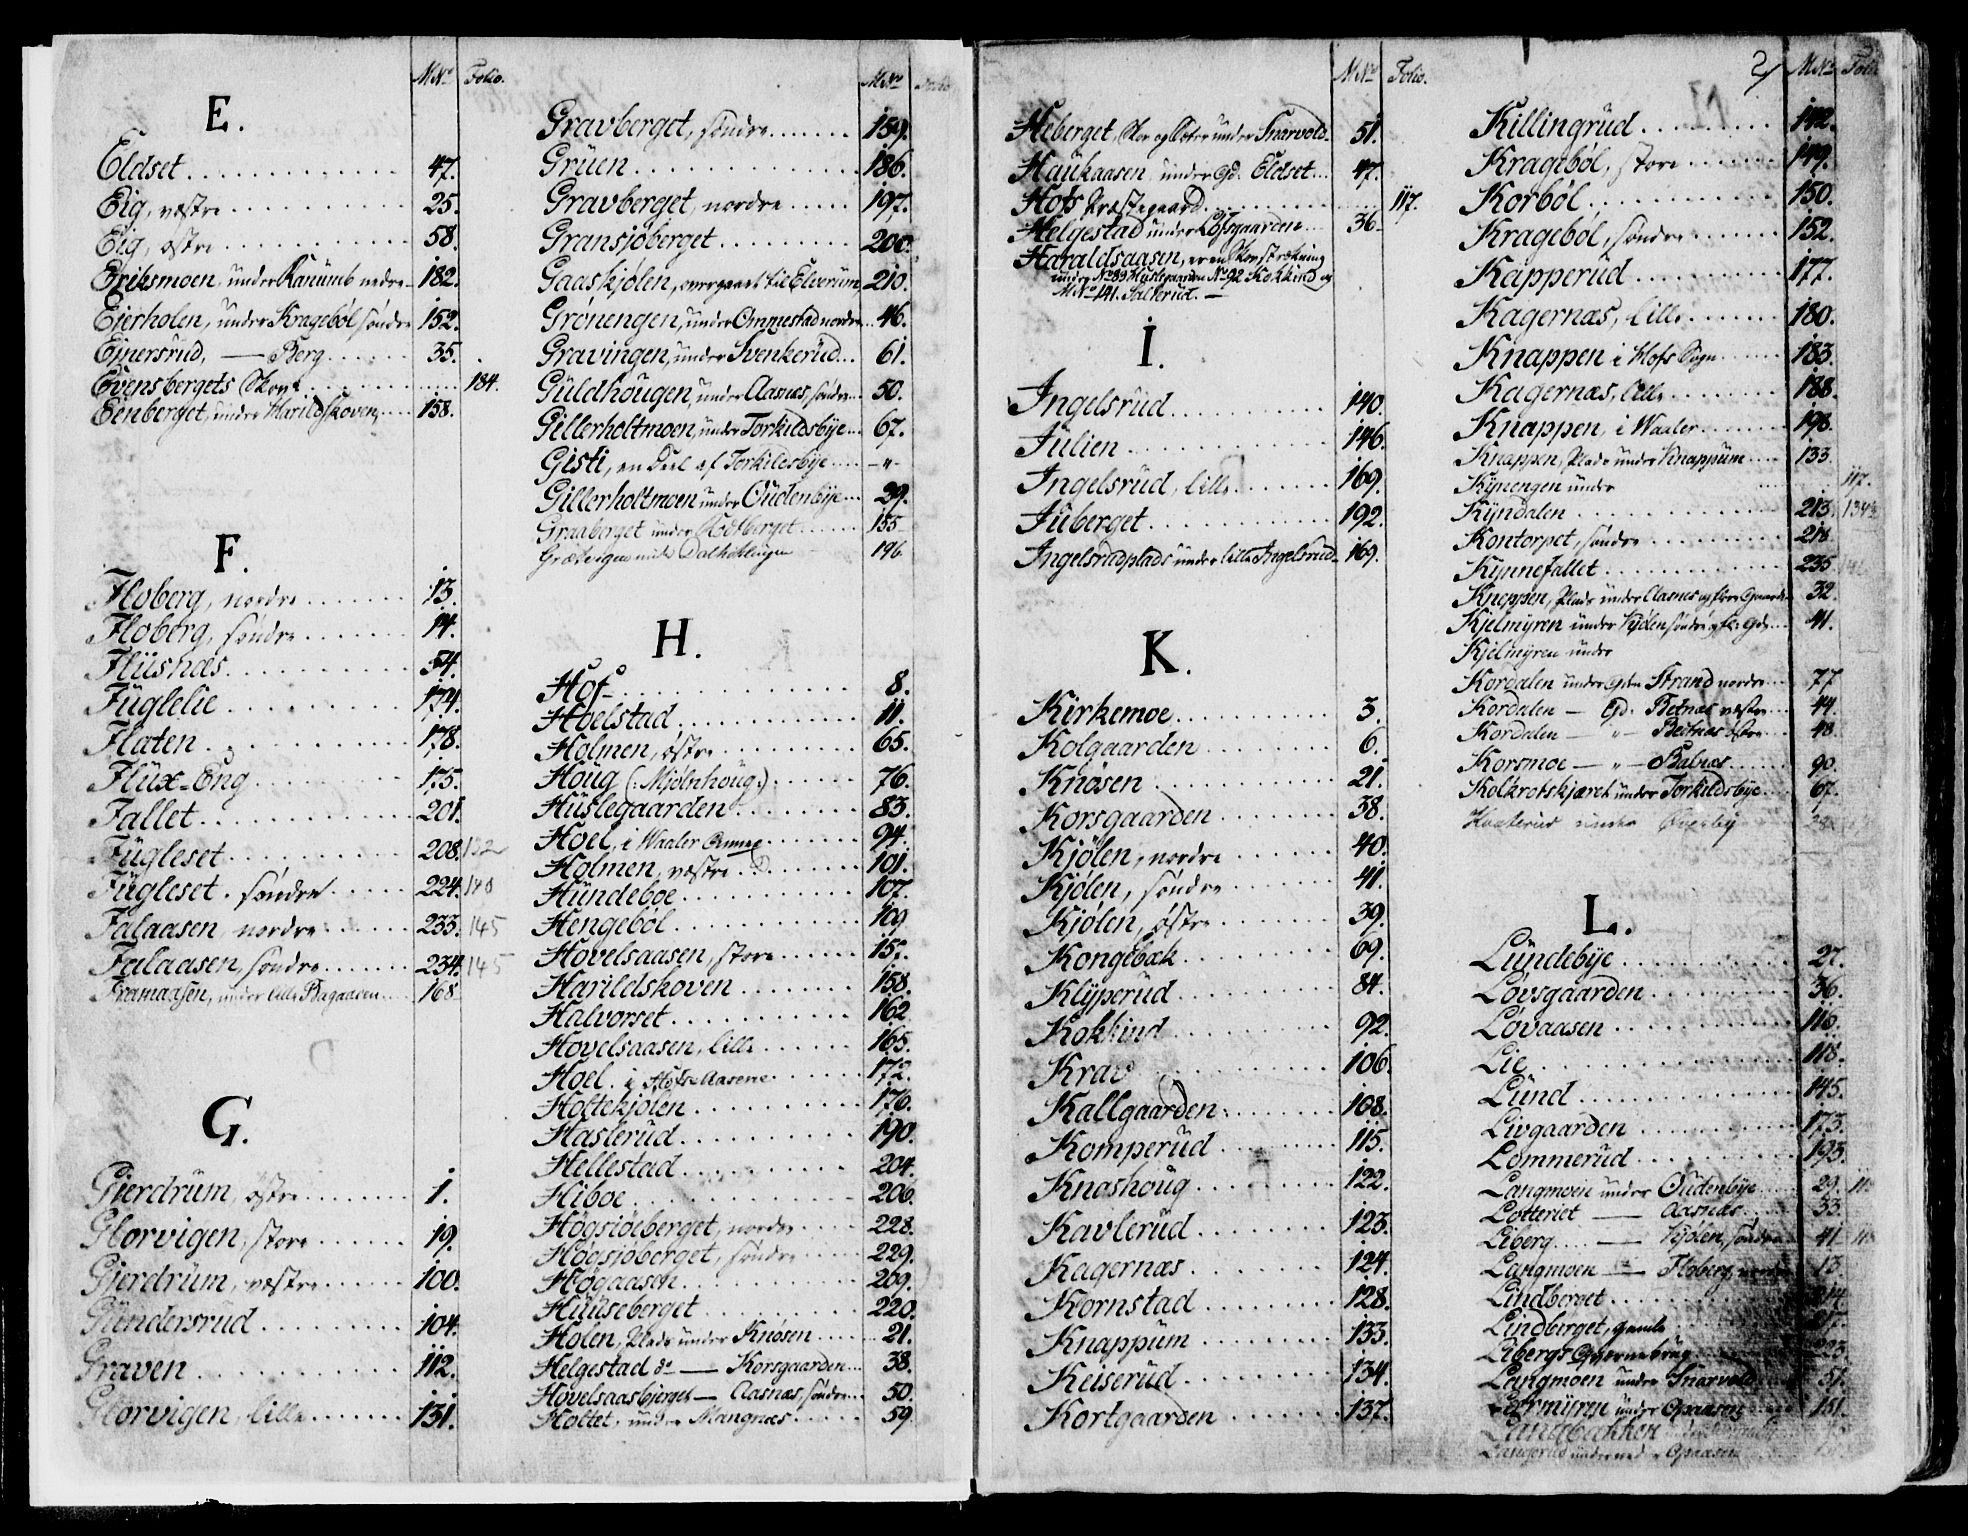 M.No Folio.
E.
Eldset 47.
Eig, væstre 25.
Eig, østre 58.
Eriksmoen, under Kanumb nedre 182.
Ejerholen, under Kragebøl søndre 152.
Ejnersrud, — Berg 35.
Evensbergets Skov 184.
Eenberget, under Harildskoven 158.
F.
Floberg, nordre 13.
Floberg, søndre 14.
Fliisnæs 54.
Fuglelie 174.
Flaten 178.
Flux-Eng 175.
Fallet 201.
Fugleset 208. 132
Fugleset. søndre 224. 140
Falaasen nordre 233. 145
Falaasen, søndre 234. 145
Framaasen, under lille Bagaasen 168
G.
Gierdrum, østre 1.
Glorvigen, store 19.
Gjerdrum, væstre 100.
Gundersrud 104.
Graven 112.
Glorvigen, lille 131.
M.No Folio
Gravberget, søndre 159.
Gruen 186.
Gravberget, nordre 197.
Gransjøberget 200.
Gaaskjølen, overgaaet til Elverum 210.
Grønengen, under Ommestad nordre 46.
Gravingen, under Svenkerud 61.
Guldhougen, under Aasnæs, søndre 50.
Gillerholtmoen, under Torkildsbye 67.
Gisti, en Deel af Torkildsbye — " —
Gillerholtmoen under Oudenbye 29.
Graaberget under Rodberget 155
196
H.
Hof 8.
Hoelstad 11.
Holmen, østre 65.
Houg (: Mjølnhoug:) 76.
Huslegaarden 83.
Hoel, i Waaler Annex 94.
Holmen, væstre 101.
Hundeboe 107.
Hengebøl 109
Hovelsaasen, store 157.
Harildskoven 158.
Halvorset 162
Hovelsaasen, lille 165.
Hoel. i Hofs-Aasene 172.
Holtekjølen 176.
Haslerud 190.
Hellestad 204.
Hiboe 206.
Høgsiøeberget, nordre 228.
Høgsjøberget, søndre 229.
Høgaasen 209.
Huuseberget 220.
Holen, Plads under Knøsen 21.
Helgestad do — Korsgaarden 38.
Hovelsaasbjerget — Aasnæs, søndre 50.
Holtet, under Mangnæs 59
M.No Folio.
Heberget, Skov og Sæter under Snarvold 51.
Haukaasen under Gd. Eldset 47.
Hofs Præstegaard 117.
Helgestad under Løfsgaarden 36.
Haraldsaasen, er en Skovstrækning
under No 89 Huslegaarden No 92 Kokkind og
M.No 141. Salterud. —
I.
Ingelsrud 140.
Julien 146.
Ingelsrud, lille 169.
Juberget 192.
Ingelsrudplads under lille Ingelsrud 169.
K.
Kirkemoe 3.
Kolgaarden 6.
Knøsen 21.
Korsgaarden 38.
Kjølen, nordre 40.
Kjølen, søndre 41.
Kjølen, østre 39.
Kongebæk 69.
Klyperud 84.
Kokkind 92.
Krav 106.
Kallgaarden 108.
Komperud 115.
Knashoug 122.
Kavlerud 123.
Kagernæs 124.
Kornstad 128.
Knappum 133.
Keiserud 134.
Kortgaarden 137.
2, M.No Folio
Killingrud 142.
Kragebøl, store 149.
Korbøl 150.
Kragebøl, søndre 152.
Kapperud 177.
Kagernæs, lille 180.
Knappen i Hofs Sogn 183.
Kagernæs, lille 188.
Knappen, i Waaler 198.
Knappen, Plads under Knappum 133.
Kynengen under 117.
Kyndalen 213. 134
Kontorpet, søndre 218.
Kynnefallet 235.
Kneppen, Plads under Aasnæs og flere Gaarde 32.
Kjelmyren under Kjølen søndre og fl. Gde 41.
Kjelmyren under
Kordalen under Gden Strand nordre 77
Kordalen — Gd. Botnæs væstre 44.
Kordalen — " — Botnæs østre 48.
Korsmoe — " — Balnæs 90.
Kolkrotskjæret under Torkildsbye 67.
L.
Lundebye 27.
Løvsgaarden 36.
Løvaasen 116.
Lie 118.
Lund 145.
Livgaarden 173.
Lommerud 193.
Langmoen under Oudenbye 29.
Lotteriet — Aasnæs 53.
Liberg — Kjølen, søndre 41.
Langmoen — Floberg, nordre 13.
Lindberget 214.
Lindberget, gamle 217.
Libergs Qværnebrug 223.
Langmoen under Snarvold 51.
under Opaasen 151.
Opaasen